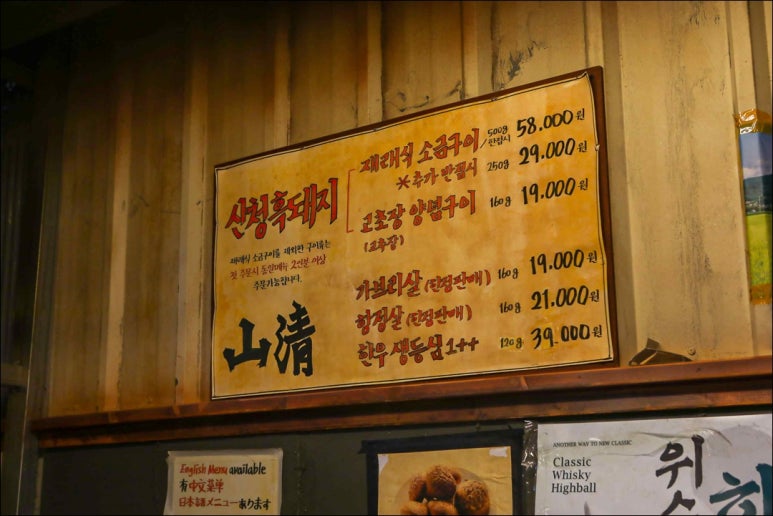 산청흑돼지
재래식 소금구이 500g/한접시 58.000원
※추가 반접시 250g 29.000원
고초장 양념구이 160g 19.000원
(고추장)
재래식 소금구이를 제외한 구이류는
첫 주문시 동일메뉴 2인분 이상
주문가능합니다.
山清
가브리살 (한정판매) 160g 19.000원
항정살 (한정판매) 160g 21.000원
한우 생등심 1++ 120g 39.000원
English Menu available
有中文菜单
日本語メニューあります
ANOTHER WAY TO NEW CLASSIC
Classic
Whisky
Highball
위스
하